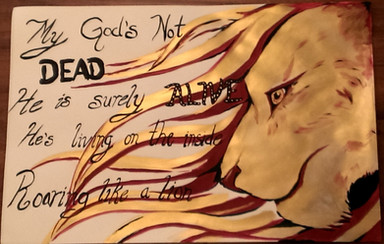 My God's Not
DEAD
He is surely ALIVE
He's living on the inside
Roaring like a lion